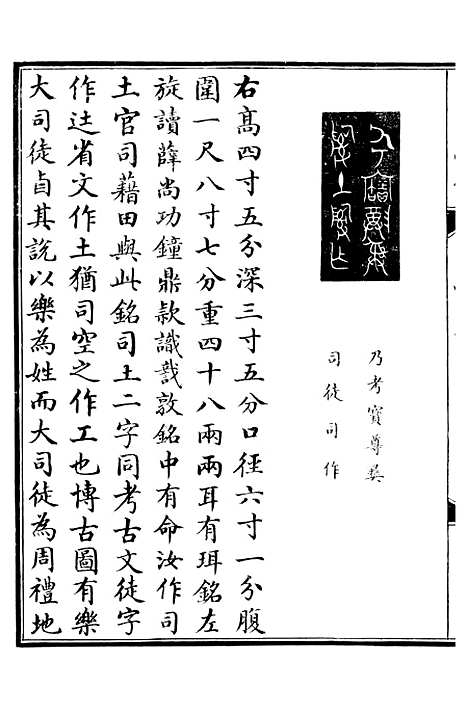 乃考寶尊彝
司徒司作
右髙四寸五分深三寸五分口徑六寸一分腹
圍一尺八寸七分重四十八兩兩耳有珥銘左
旋讀薛尚功鐘鼎款識戠敦銘中有命汝作司
土官司藉田與此銘司土二字同考古文徒字
作𨑒省文作土猶司空之作工也博古圖有樂
大司徒卣其說以樂為姓而大司徒為周禮地